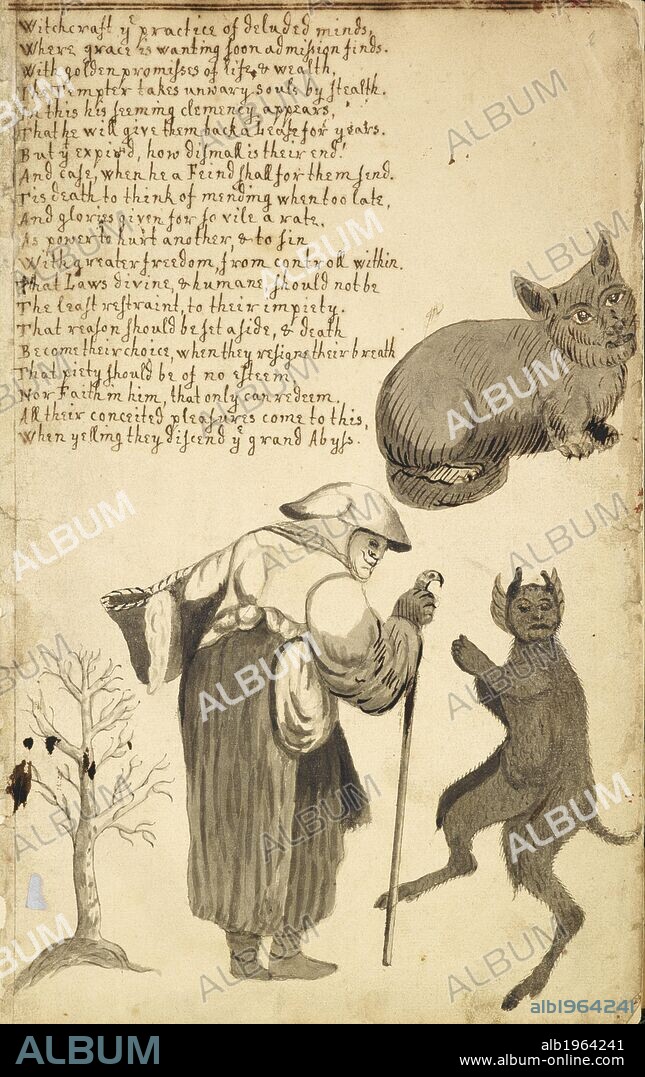 Witchcraft yͤ practice of deluded minds,
Where grace is wanting soon admission finds.
With golden promisses of life, & wealth,
The Tempter takes unwary souls by stealth.
In this his seeming clemency appears,
That he will give them back a Lease for years.
But yͭ expir'd, how dismall is their end!
And case, when he a Feind shall for them send.
Tis death to think of mending when too late,
And glories given for so vile a rate,
As power to hurt another, & to sin
With greater freedom, from controll within.
That Laws divine, & humane, should not be
The least restraint, to their impiety.
That reason should be set aside, & death
Become their choice, when they resigne their breath
That piety should be of no esteem,
Nor Faith in him, that only can redeem.
All their conceited pleasures come to this,
When yelling they discend yͤ grand Abyss.
ALBUM
alb1964241
ALBUM
alb1964241
www.album-online.com